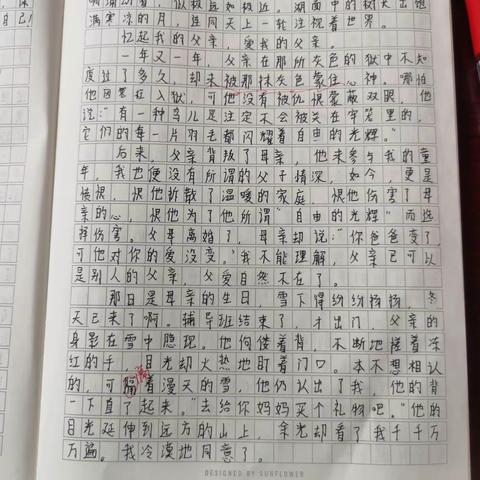 自己!
满寒凉的月，连同天上一轮注视着世界。
忆起我的父亲，爱我的父亲。
一年又一年，父亲在那所灰色的狱中不知
度过了多久，却未被那抹灰色蒙住心神。哪怕
他因冤狂入狱，可他没有被仇恨蒙蔽双眼，他
说："有一种鸟儿是注定不会被关在牢笼里的，
它们的每一片羽毛都闪耀着自由的光辉。"
后来，父亲背叛了母亲，他未参与我的童
年，我也便没有所谓的父子情深，如今，更是
愤恨，恨他拆散了温暖的家庭，恨他伤害了母
亲的心，恨他为了他所谓"自由的光辉"而选
择伤害。父母离婚了，母亲却说："你爸爸变了，
可他对你的爱没变。"我不能理解，父亲已可以
是别人的父亲，父爱自然不在了。
那日是母亲的生日，雪下得纷纷扬扬，冬
天已来了啊。辅导班结束了，才出门，父亲的
身影在雪中隐现。他佝偻着背，不断地搓着冻
红的手，目光却火热地盯着门口。本不想相认
的，可隔着漫天的雪，他仍认出了我，他的背
一下直了起来。"去给你妈妈买个礼物吧。"他的
目光延伸到远方的山上，余光却看了我千千万
万遍。我冷漠地同意了。
DESIGNED BY SUNFLOWER